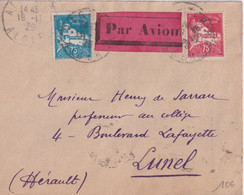 14 45
Par Avion
75
75
Monsieur Henry de Sarrau
professeur au collège
4 - Boulevard Lafayette
Lunel
(Hérault)